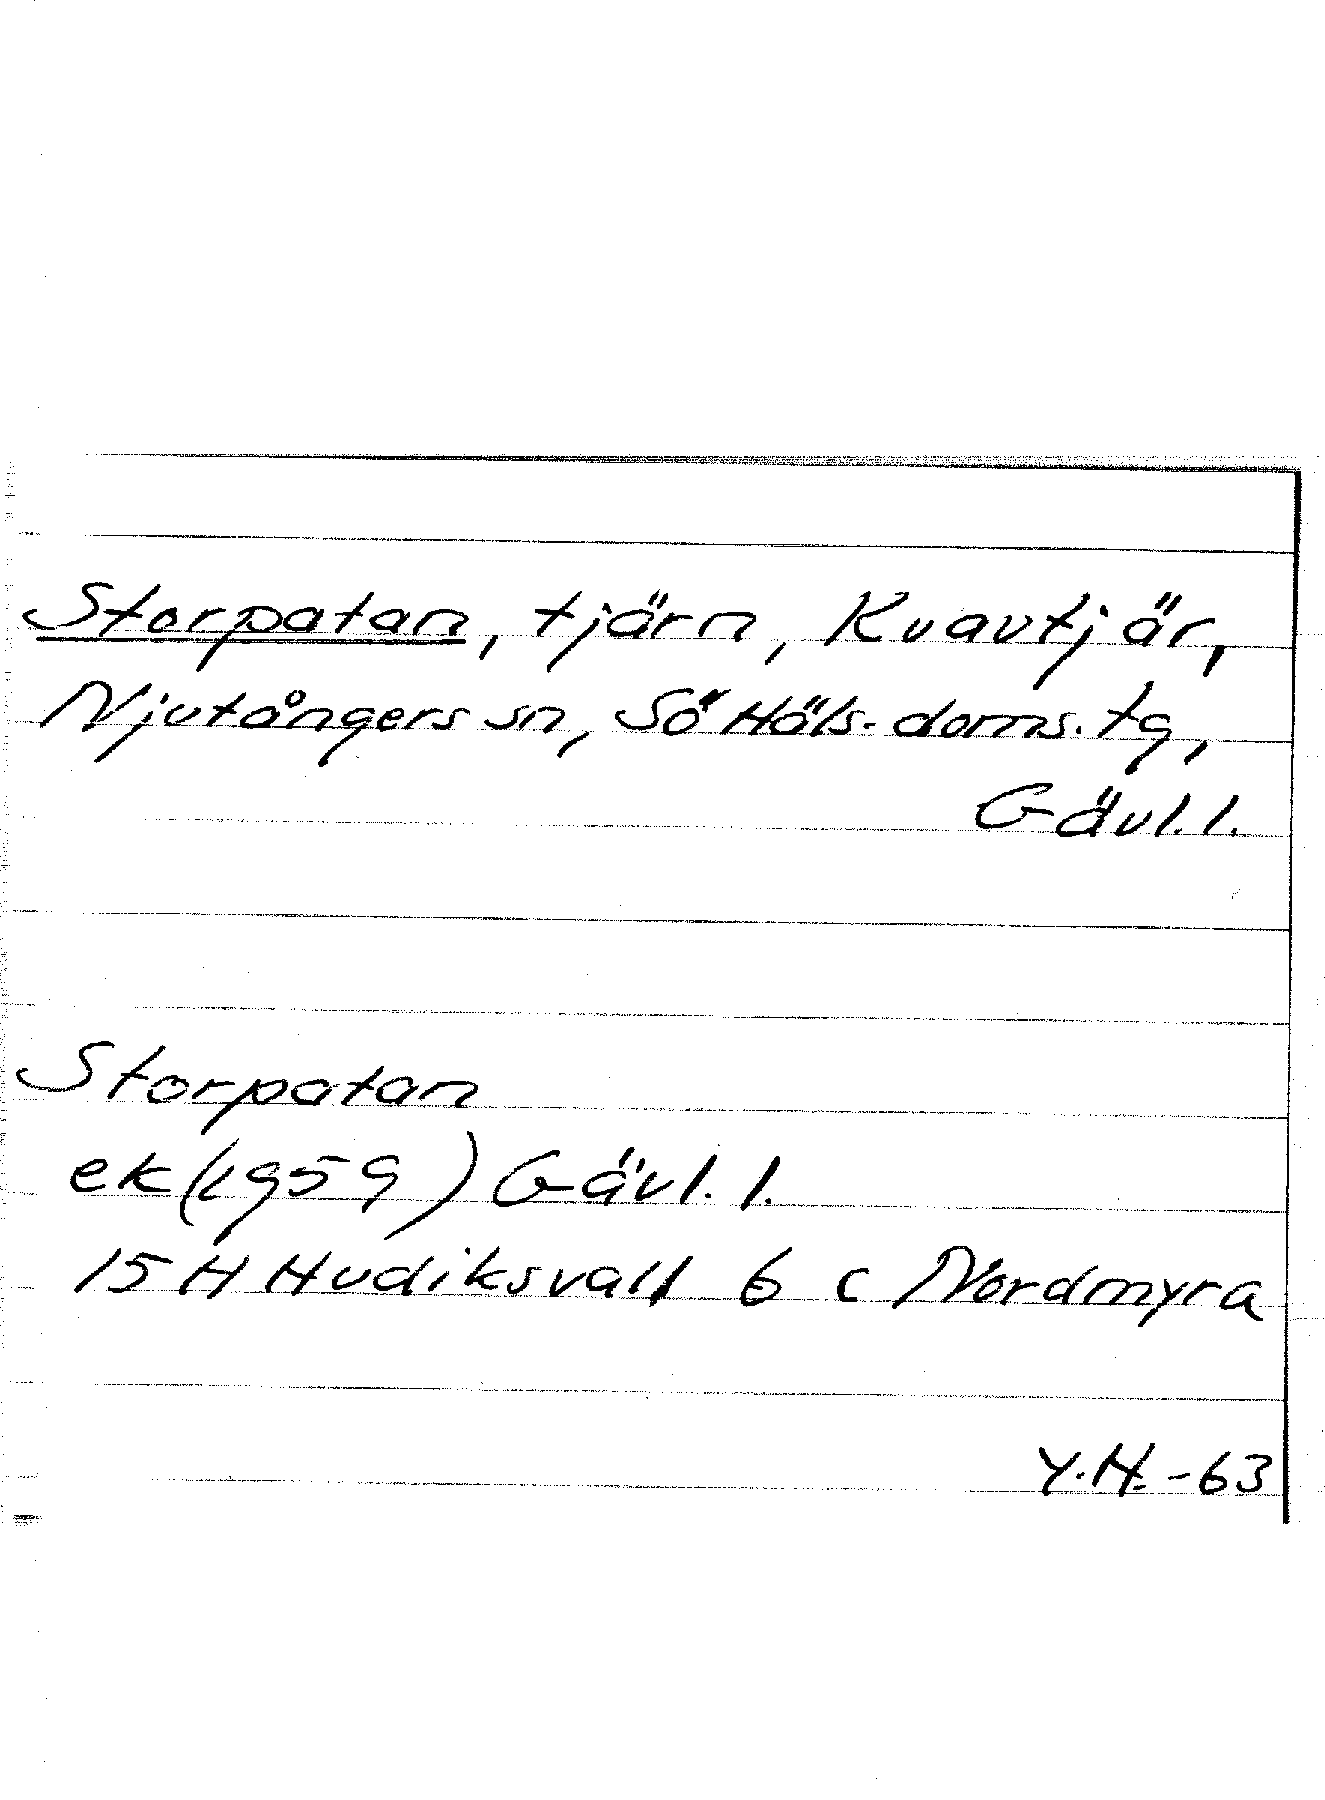 Storpatan, tjärn, Kvavtjär,
Njutångers sn, Sö Häls. doms. tg,
Gävl. l.
Storpatan
ek (1959) Gävl. l.
15 H Hudiksvall 6 c Nordmyra
Y.H. -63